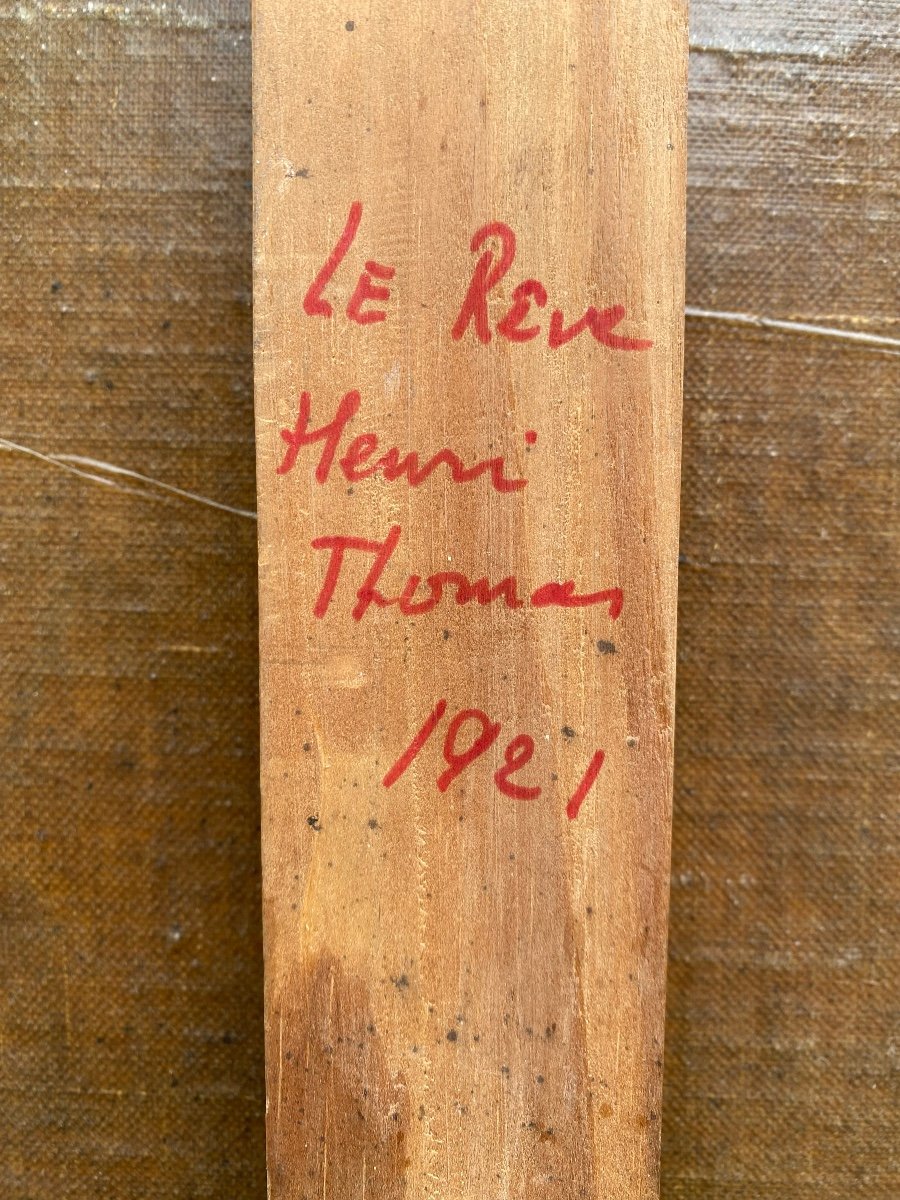 LE Rêve
Henri
Thomas
1921